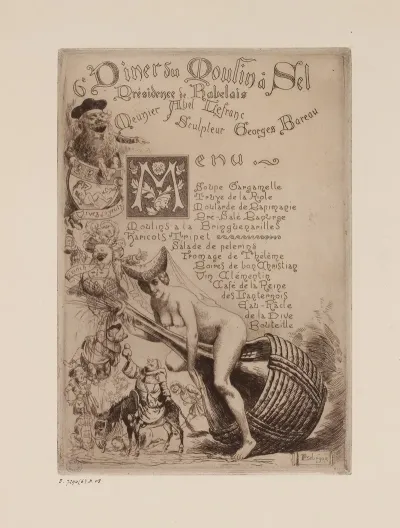 6e Diner du Moulin à Sel
Présidence de Rabelais
Meunier Abel Lefranc
Sculpteur Georges Bareau
Menu
Soupe Gargamelle
Truye de la Ryole
Moutarde de Papimanie
Pré-Salé Panurge
Moulins à la Bringuenarilles
Haricots Tripinel
Salade de pelerins
Fromage de Thélème
Poires de bon Christian
Vin Clémentin
Café de la Reine
des Lanternois
Eau-Racle
de la Dive
Bouteille